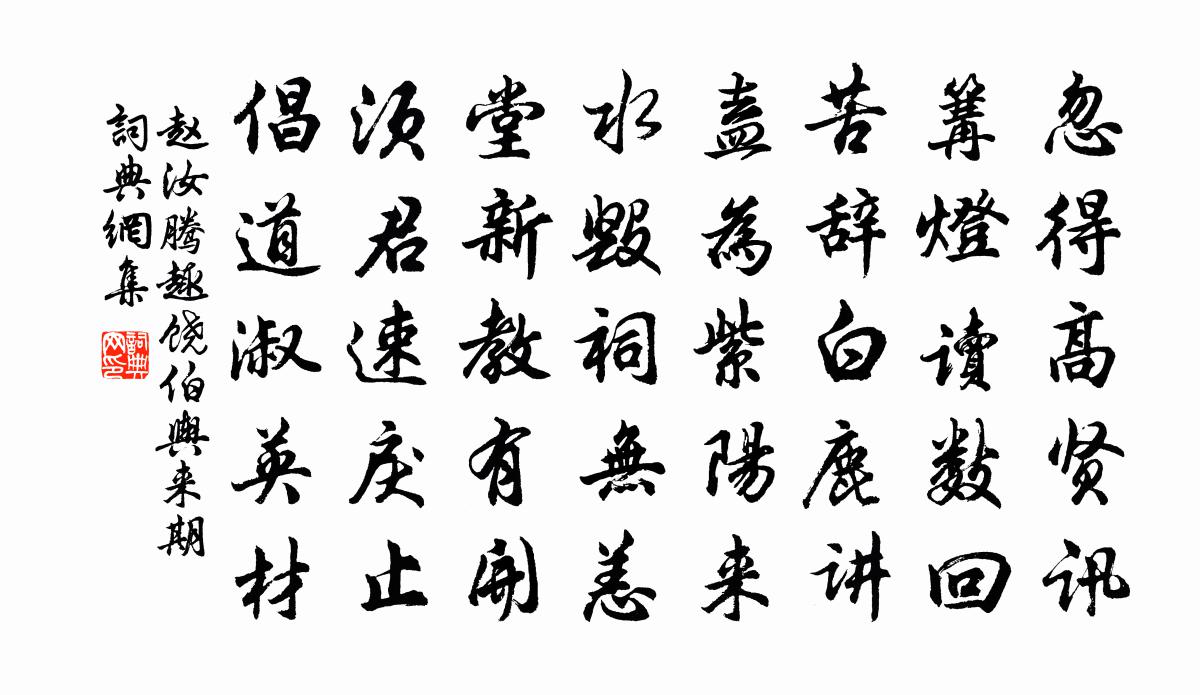 忽得高贤讯
篝燈讀数回
苦辞白鹿讲
盍為紫陽来
水毁祠無恙
堂新教有開
须君速戾止
倡道淑英材
赵汝腾趣饶伯輿来期
詞典網集
詞典網印